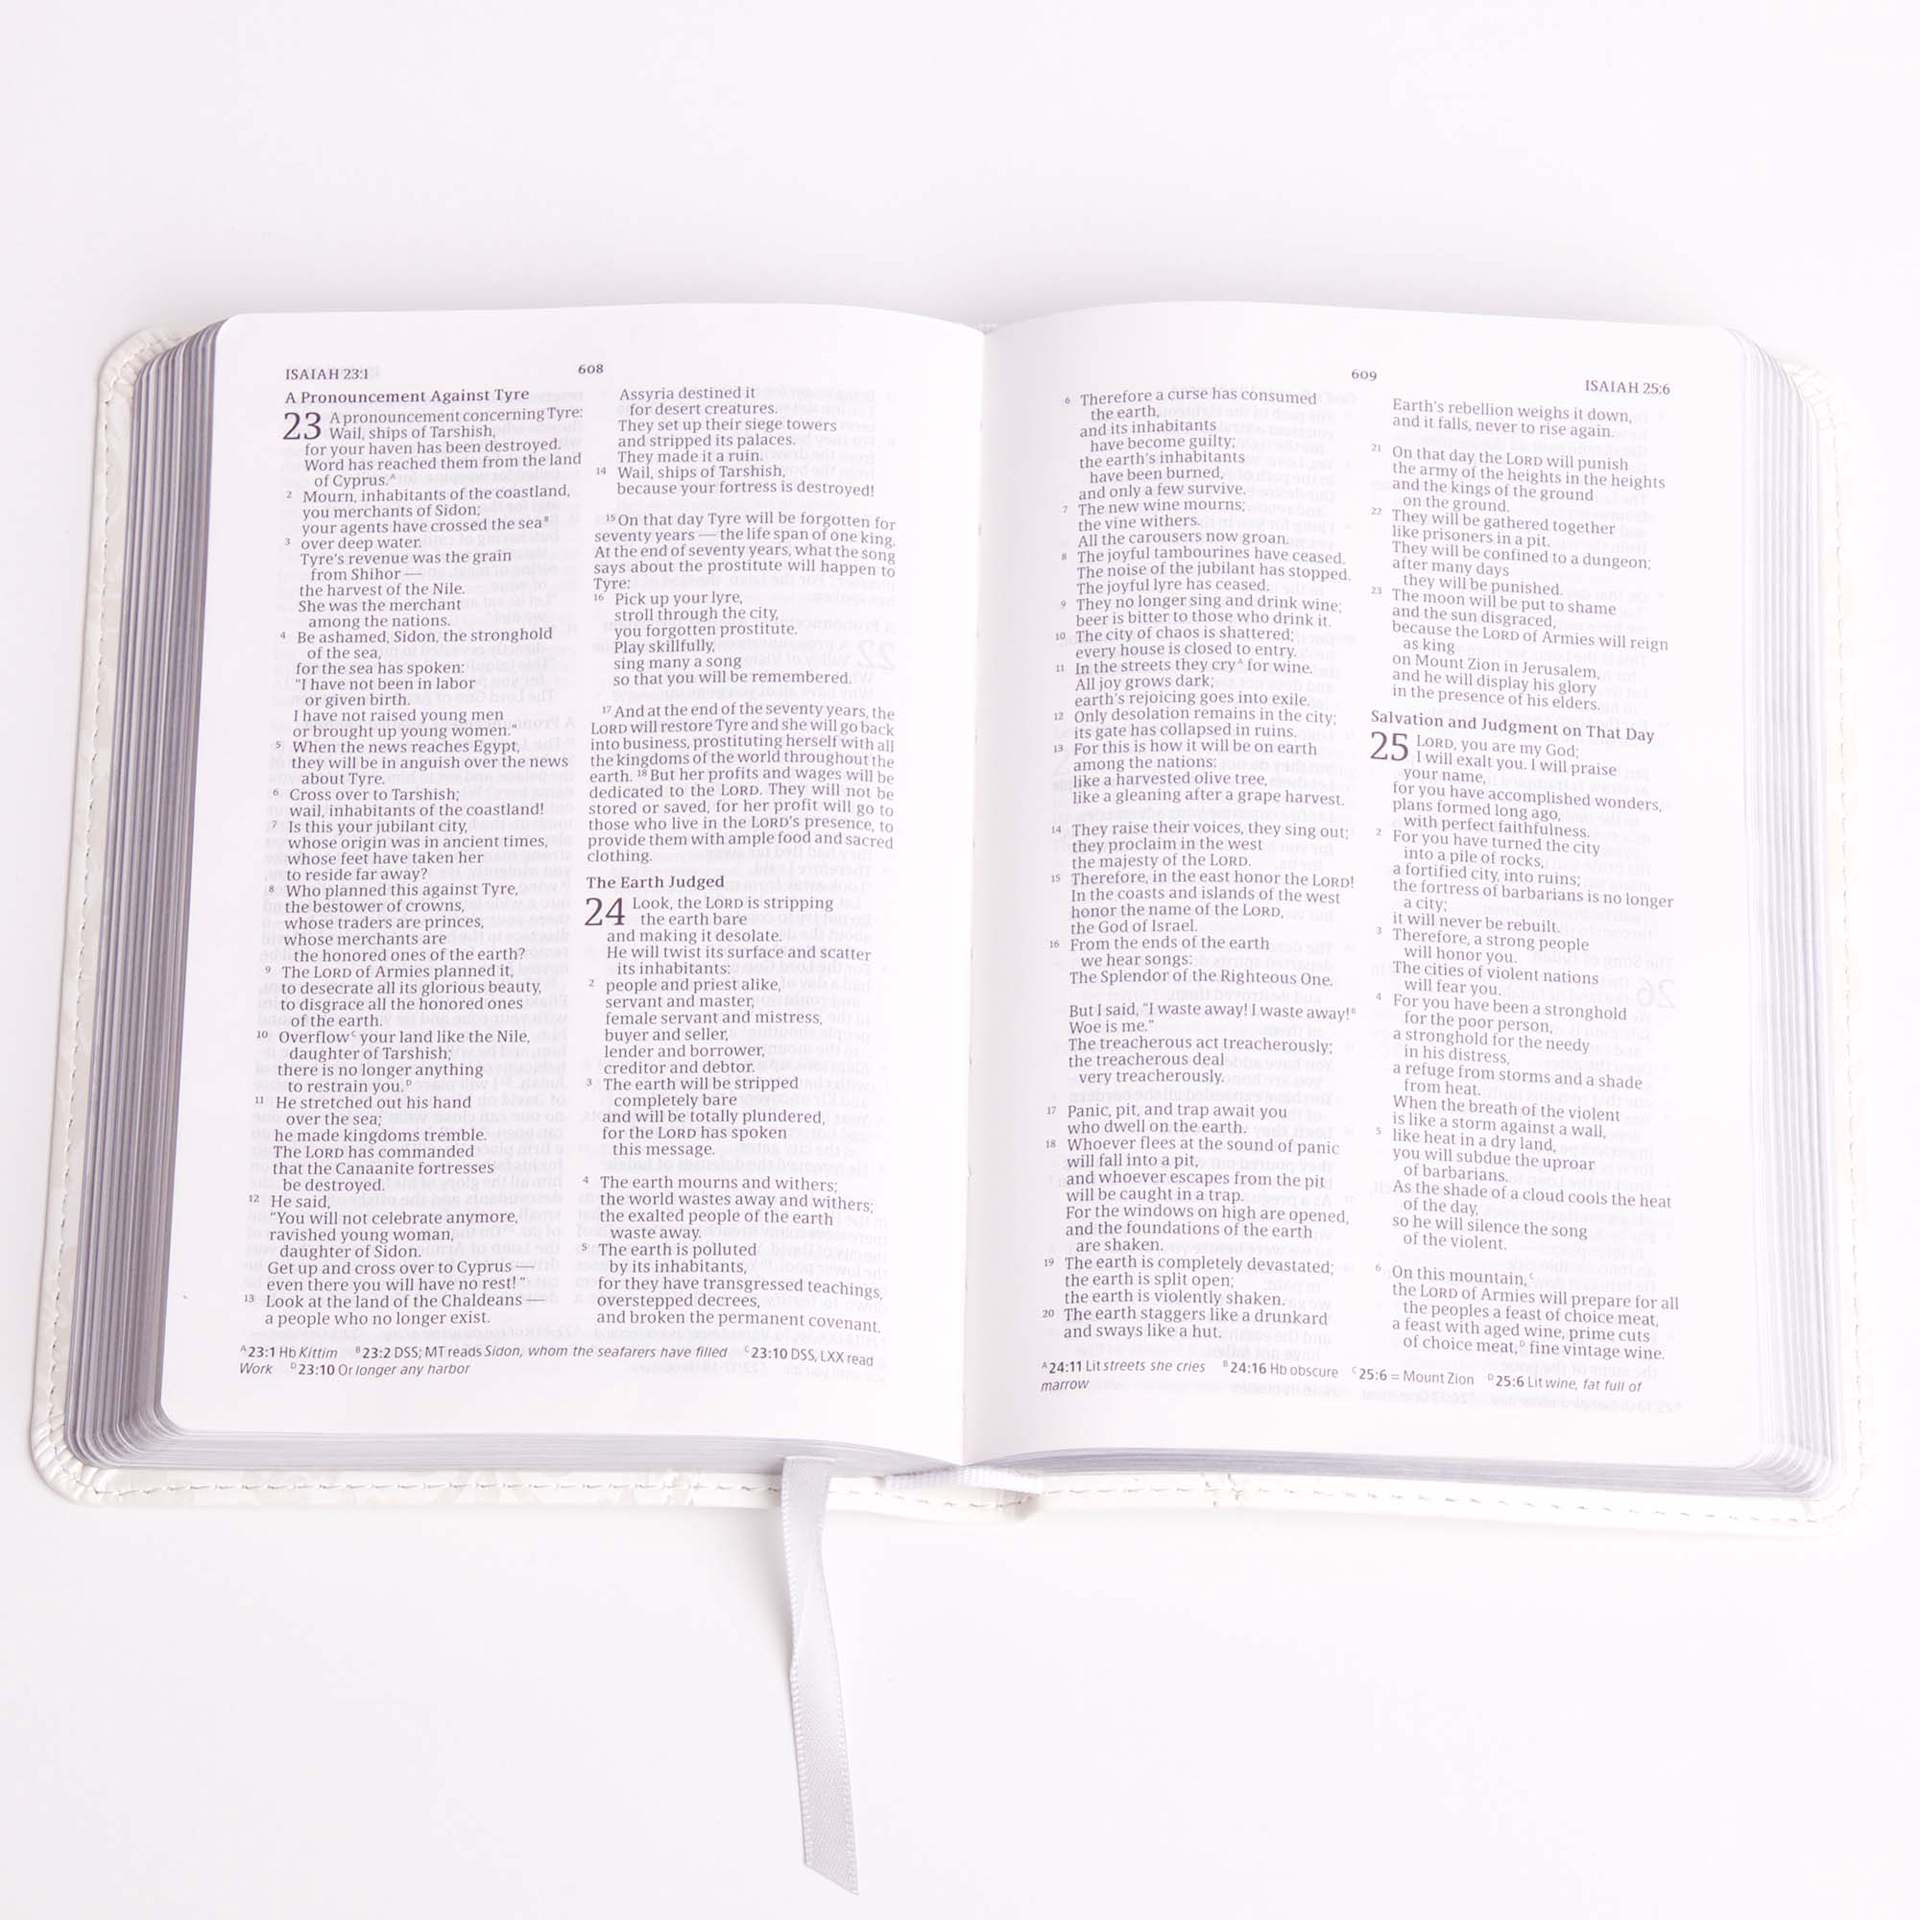 ISAIAH 23:1
608
A Pronouncement Against Tyre
23 A pronouncement concerning Tyre:
Wail, ships of Tarshish,
for your haven has been destroyed.
Word has reached them from the land
of Cyprus.ᴬ
2 Mourn, inhabitants of the coastland,
you merchants of Sidon;
your agents have crossed the seaᴮ
3 over deep water.
Tyre’s revenue was the grain
from Shihor —
the harvest of the Nile.
She was the merchant
among the nations.
4 Be ashamed, Sidon, the stronghold
of the sea,
for the sea has spoken:
“I have not been in labor
or given birth.
I have not raised young men
or brought up young women.”
5 When the news reaches Egypt,
they will be in anguish over the news
about Tyre.
6 Cross over to Tarshish;
wail, inhabitants of the coastland!
7 Is this your jubilant city,
whose origin was in ancient times,
whose feet have taken her
to reside far away?
8 Who planned this against Tyre,
the bestower of crowns,
whose traders are princes,
whose merchants are
the honored ones of the earth?
9 The LORD of Armies planned it,
to desecrate all its glorious beauty,
to disgrace all the honored ones
of the earth.
10 Overflowᶜ your land like the Nile,
daughter of Tarshish;
there is no longer anything
to restrain you.ᴰ
11 He stretched out his hand
over the sea;
he made kingdoms tremble.
The LORD has commanded
that the Canaanite fortresses
be destroyed.
12 He said,
“You will not celebrate anymore,
ravished young woman,
daughter of Sidon.
Get up and cross over to Cyprus —
even there you will have no rest!”
13 Look at the land of the Chaldeans —
a people who no longer exist.
Assyria destined it
for desert creatures.
They set up their siege towers
and stripped its palaces.
They made it a ruin.
14 Wail, ships of Tarshish,
because your fortress is destroyed!
15 On that day Tyre will be forgotten for
seventy years — the life span of one king.
At the end of seventy years, what the song
says about the prostitute will happen to
Tyre:
16 Pick up your lyre,
stroll through the city,
you forgotten prostitute.
Play skillfully,
sing many a song
so that you will be remembered.
17 And at the end of the seventy years, the
LORD will restore Tyre and she will go back
into business, prostituting herself with all
the kingdoms of the world throughout the
earth. 18 But her profits and wages will be
dedicated to the LORD. They will not be
stored or saved, for her profit will go to
those who live in the LORD’s presence, to
provide them with ample food and sacred
clothing.
The Earth Judged
24 Look, the LORD is stripping
the earth bare
and making it desolate.
He will twist its surface and scatter
its inhabitants:
2 people and priest alike,
servant and master,
female servant and mistress,
buyer and seller,
lender and borrower,
creditor and debtor.
3 The earth will be stripped
completely bare
and will be totally plundered,
for the LORD has spoken
this message.
4 The earth mourns and withers;
the world wastes away and withers;
the exalted people of the earth
waste away.
5 The earth is polluted
by its inhabitants,
for they have transgressed teachings,
overstepped decrees,
and broken the permanent covenant.
ᴬ23:1 Hb Kittim ᴮ23:2 DSS; MT reads Sidon, whom the seafarers have filled ᶜ23:10 DSS, LXX read
Work ᴰ23:10 Or longer any harbor
609
ISAIAH 25:6
6 Therefore a curse has consumed
the earth,
and its inhabitants
have become guilty;
the earth’s inhabitants
have been burned,
and only a few survive.
7 The new wine mourns;
the vine withers.
All the carousers now groan.
8 The joyful tambourines have ceased.
The noise of the jubilant has stopped.
The joyful lyre has ceased.
9 They no longer sing and drink wine;
beer is bitter to those who drink it.
10 The city of chaos is shattered;
every house is closed to entry.
11 In the streets they cryᴬ for wine.
All joy grows dark;
earth’s rejoicing goes into exile.
12 Only desolation remains in the city;
its gate has collapsed in ruins.
13 For this is how it will be on earth
among the nations:
like a harvested olive tree,
like a gleaning after a grape harvest.
14 They raise their voices, they sing out;
they proclaim in the west
the majesty of the LORD.
15 Therefore, in the east honor the LORD!
In the coasts and islands of the west
honor the name of the LORD,
the God of Israel.
16 From the ends of the earth
we hear songs:
The Splendor of the Righteous One.
But I said, “I waste away! I waste away!ᴮ
Woe is me.”
The treacherous act treacherously;
the treacherous deal
very treacherously.
17 Panic, pit, and trap await you
who dwell on the earth.
18 Whoever flees at the sound of panic
will fall into a pit,
and whoever escapes from the pit
will be caught in a trap.
For the windows on high are opened,
and the foundations of the earth
are shaken.
19 The earth is completely devastated;
the earth is split open;
the earth is violently shaken.
20 The earth staggers like a drunkard
and sways like a hut.
Earth’s rebellion weighs it down,
and it falls, never to rise again.
21 On that day the LORD will punish
the army of the heights in the heights
and the kings of the ground
on the ground.
22 They will be gathered together
like prisoners in a pit.
They will be confined to a dungeon;
after many days
they will be punished.
23 The moon will be put to shame
and the sun disgraced,
because the LORD of Armies will reign
as king
on Mount Zion in Jerusalem,
and he will display his glory
in the presence of his elders.
Salvation and Judgment on That Day
25 LORD, you are my God;
I will exalt you. I will praise
your name,
for you have accomplished wonders,
plans formed long ago,
with perfect faithfulness.
2 For you have turned the city
into a pile of rocks,
a fortified city, into ruins;
the fortress of barbarians is no longer
a city;
it will never be rebuilt.
3 Therefore, a strong people
will honor you.
The cities of violent nations
will fear you.
4 For you have been a stronghold
for the poor person,
a stronghold for the needy
in his distress,
a refuge from storms and a shade
from heat.
When the breath of the violent
is like a storm against a wall,
5 like heat in a dry land,
you will subdue the uproar
of barbarians.
As the shade of a cloud cools the heat
of the day,
so he will silence the song
of the violent.
6 On this mountain,ᶜ
the LORD of Armies will prepare for all
the peoples a feast of choice meat,
a feast with aged wine, prime cuts
of choice meat,ᴰ fine vintage wine.
ᴬ24:11 Lit streets she cries ᴮ24:16 Hb obscure ᶜ25:6 = Mount Zion ᴰ25:6 Lit wine, fat full of
marrow